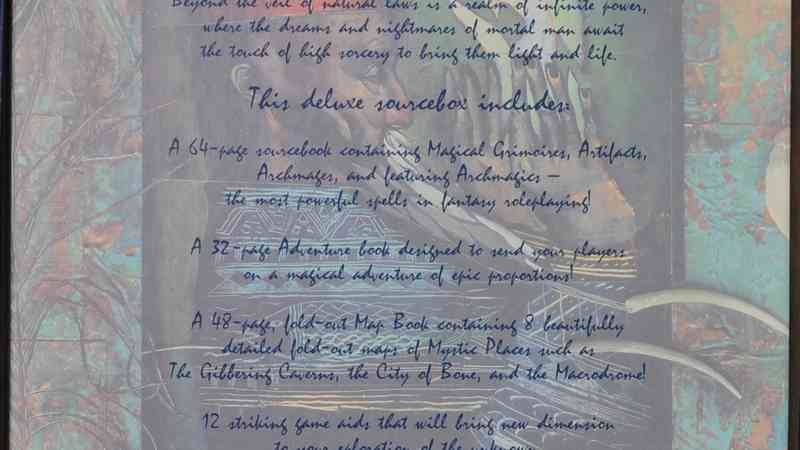 Beyond the veil of natural laws is a realm of infinite power,
where the dreams and nightmares of mortal man await
the touch of high sorcery to bring them light and life.
This deluxe sourcebox includes:
A 64-page sourcebook containing Magical Grimoires, Artifacts,
Archmages, and featuring Archmagics —
the most powerful spells in fantasy roleplaying!
A 32-page Adventure book designed to send your players
on a magical adventure of epic proportions!
A 48-page, fold-out Map Book containing 8 beautifully
detailed fold-out maps of Mystic Places such as
The Gibbering Caverns, the City of Bone, and the Macrodrome!
12 striking game aids that will bring new dimension
to your exloration of the unknown